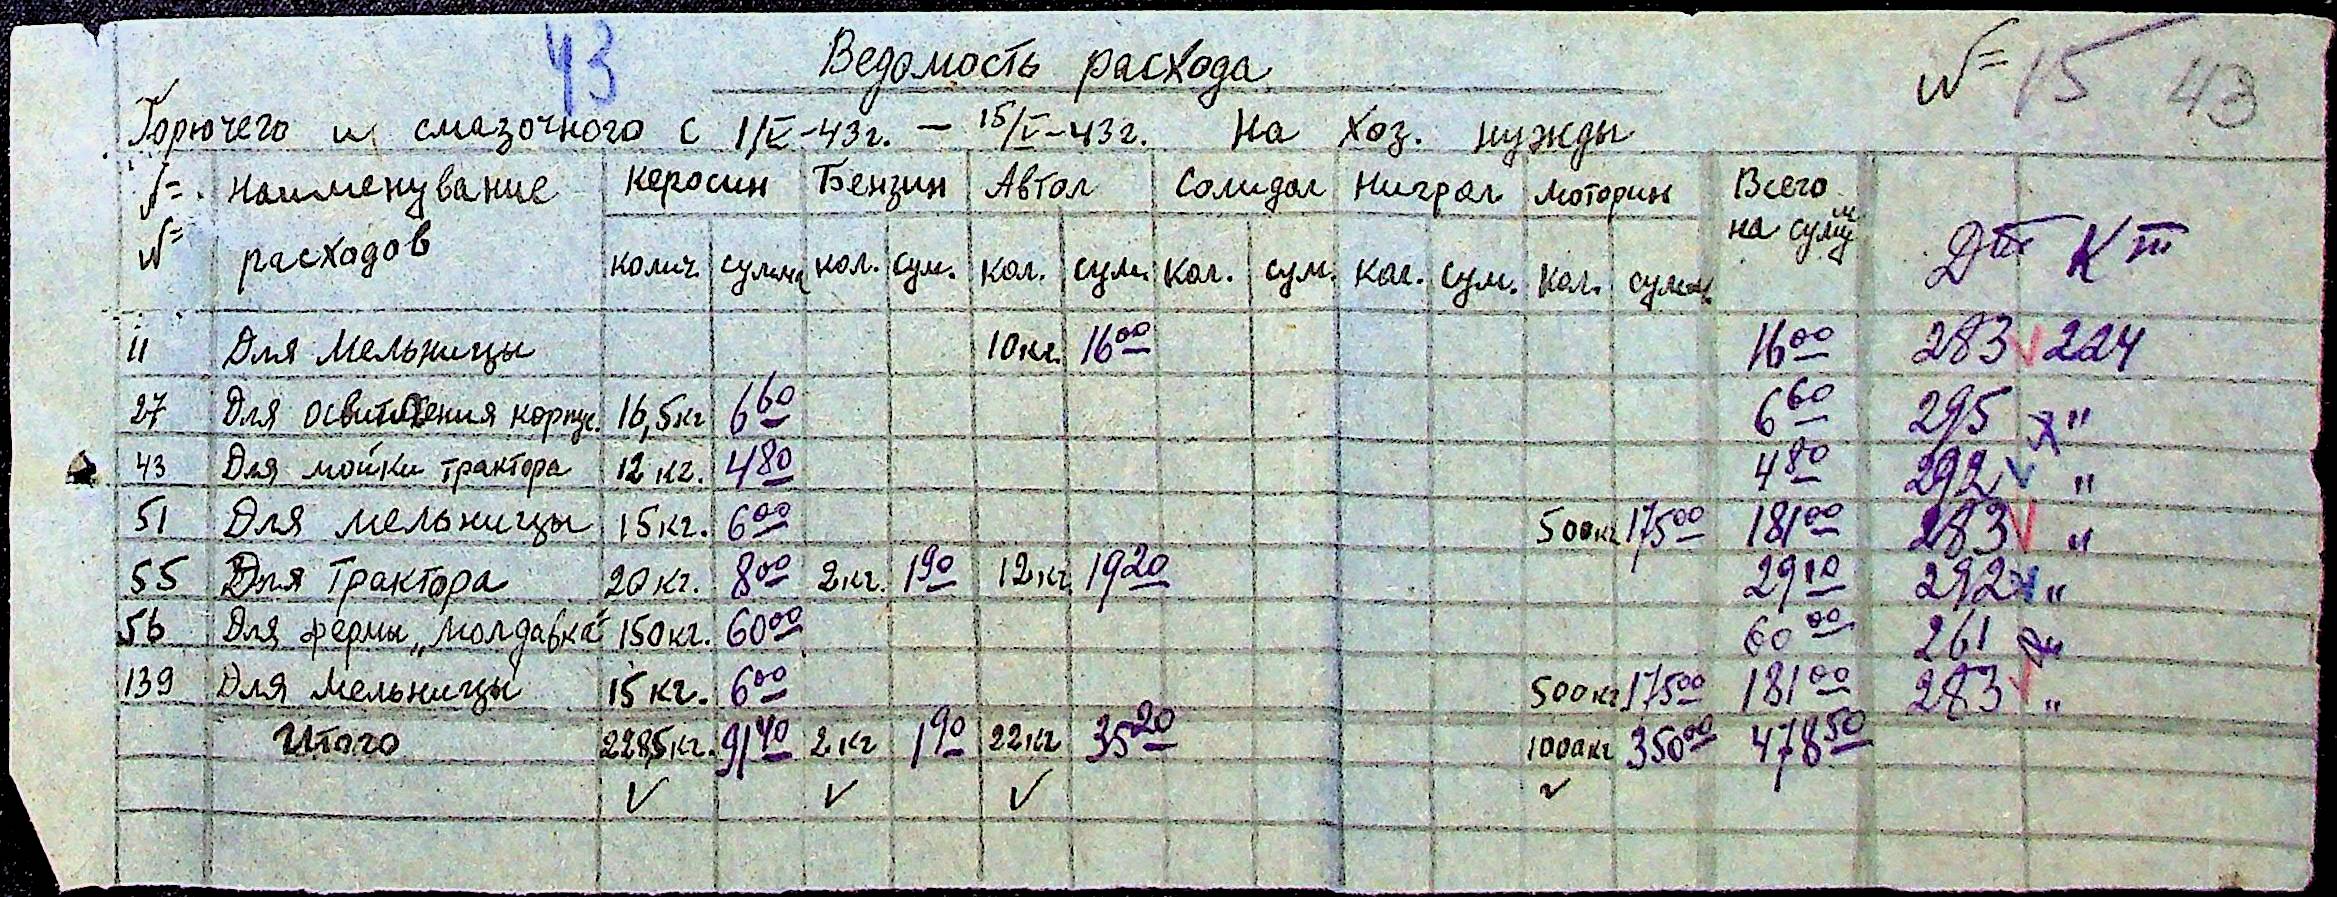 43
Ведомость расхода
№ 15 43
Горючего и смазочного с 1/V-43г. — 15/V-43г. На хоз. нужды
№ № наименување расходов Керосин Бензин Автол Солидол Нигрол Моторин Всего на сумм Дт Кт
колич. сумма кол. сум. кол. сум. кол. сум. кол. сум. кол. сумм.
11 Для Мельницы 10кг. 16 00 16 00 283 224
27 Для освитления корпус. 16,5кг 6 60 6 60 295 "
43 Для мойки трактора 12 кг. 4 80 4 80 292 "
51 Для мельницы 15кг. 6 00 500кг 175 00 181 00 283 "
55 Для Трактора 20 кг. 8 00 2 кг. 1 90 12 кг. 19 20 29 10 292 "
56 Для фермы „Молдавка" 150 кг. 60 00 60 00 261 "
139 Для Мельницы 15 кг. 6 00 500кг 175 00 181 00 283 "
Итого 228,5кг. 91 40 2 кг 1 90 22 кг 35 20 1000кг 350 00 478 50